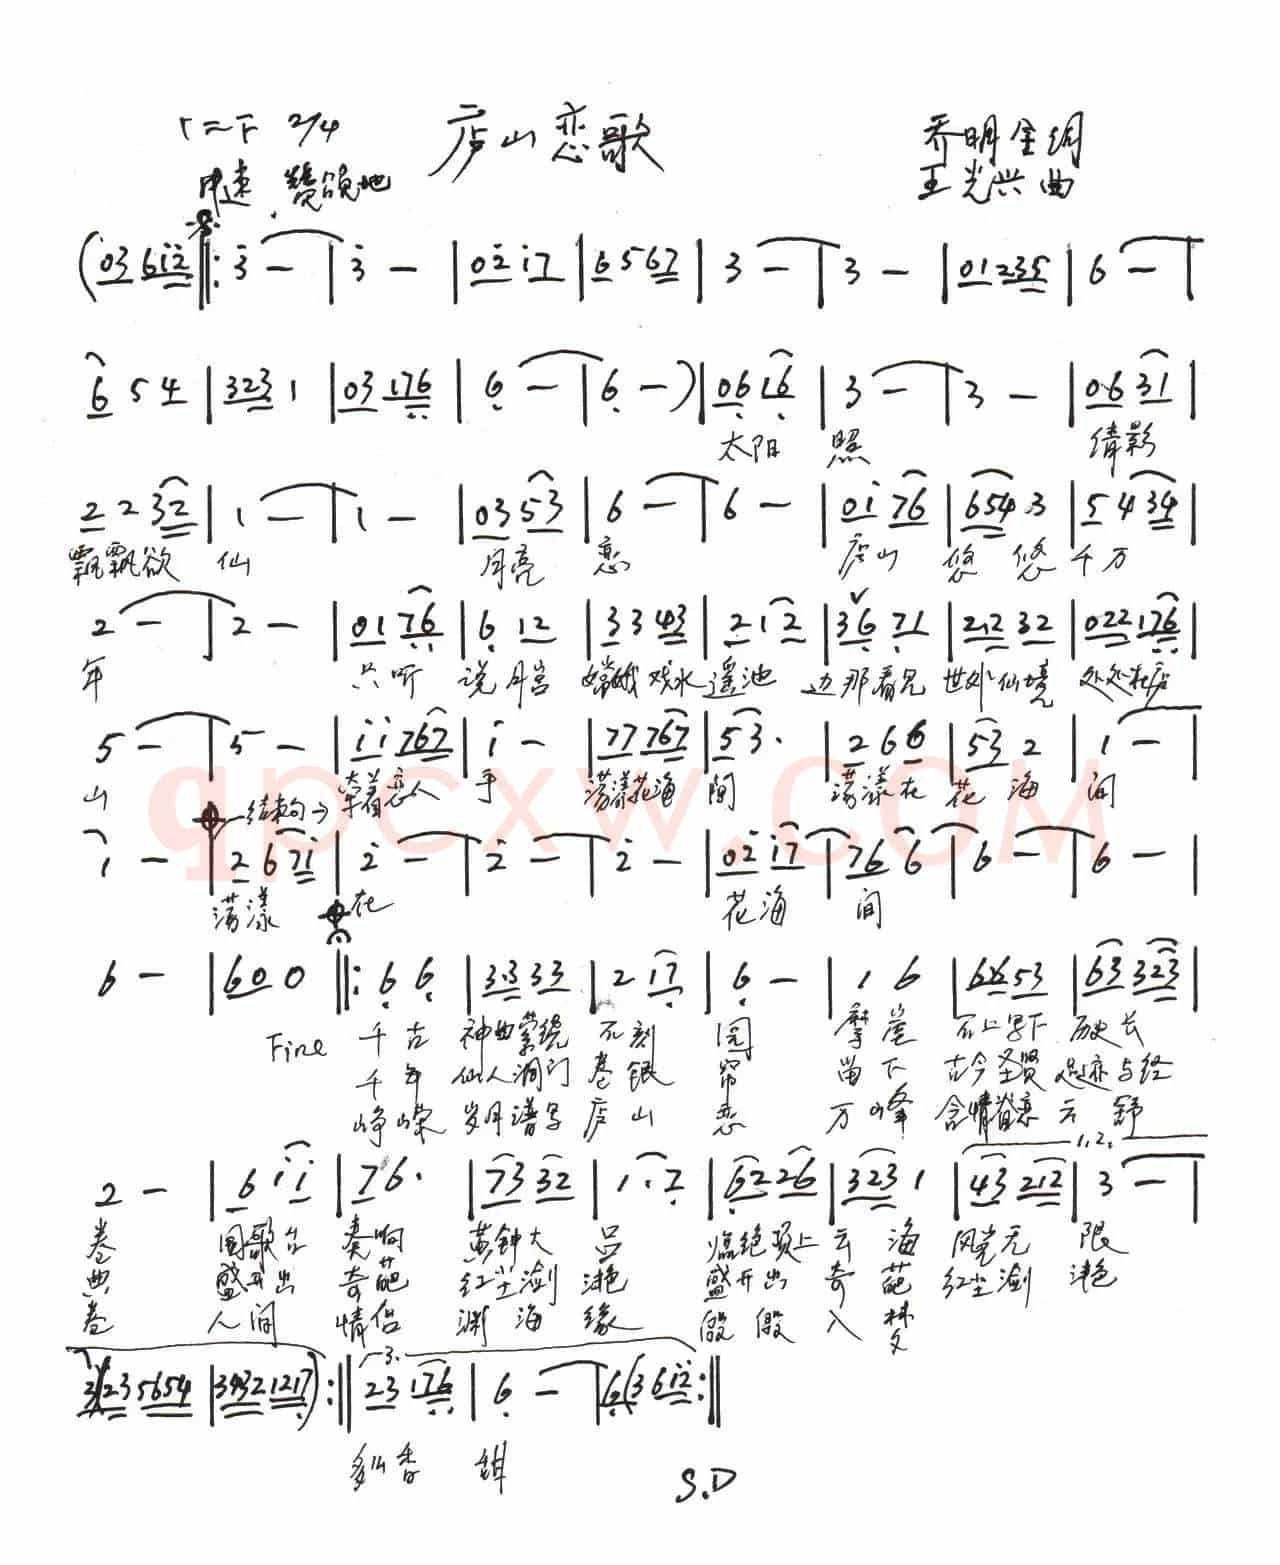 1=F 2/4 庐山恋歌 乔明金词
中速 赞颂地 王光兴 曲
(03 6i2 ‖: 3 — | 3 — | 02 i7 | 6 5 67 | 3 — | 3 — | 01 235 | 6 — |
6 5 4 | 323 1 | 03 176 | 6 — | 6 — ) | 06 16 | 3 — | 3 — | 06 31 |
太阳 照 倩影
2 2 32 | 1 — | 1 — | 03 53 | 6 — | 6 — | 01 76 | 654 3 | 5 4 34 |
飘飘欲 仙 月亮 恋 庐山 悠 悠 千万
2 — | 2 — | 01 76 | 6 12 | 3 3 43 | 2 1 2 | 36 71 | 2.2 32 | 022 176 |
年 只听 说月宫 嫦娥戏水 瑶池 边那看见 世外仙境 处处在庐
5 — | 5 — | i i 767 | i — | 77 767 | 5 3. | 2 6 6 | 53 2 | 1 — |
山 牵着恋人 手 荡漾花海 间 荡漾在 花 海 间
结束句→
1 — | 2 6 7i | 2 — | 2 — | 2 — | 02 i7 | 76 6 | 6 — | 6 — |
荡漾 在 花海 间
6 — | 60 0 ‖: 6 6 | 3.3 33 | 2 17 | 6 — | 1 6 | 66 53 | 63 323 |
Fine 千古 神曲萦绕 石刻 园 摩崖 石上写下 历史长
千年 仙人洞门 卷银 帘 留下 古今圣贤 足迹与经
峥嵘 岁月谱写 庐山 恋 万峰 含情 云舒
1,2.
2 — | 6 i i | 76. | 73 32 | 1. 7 | 62 26 | 323 1 | 43 212 | 3 — |
卷 围歌台 奏响 黄钟大 吕 临绝顶上 云 海 风光无 限
典 盛开出 奇葩 红尘潋 滟 盛开出 奇 葩 红尘潋 滟
卷 人间 情侣 渊海 缘 入 林
3.
3(23 5654 | 3432 1217) :‖ 23 176 | 6 — | 6(3 6i2 :‖
多么香 甜
S.D
qpcxw.COM